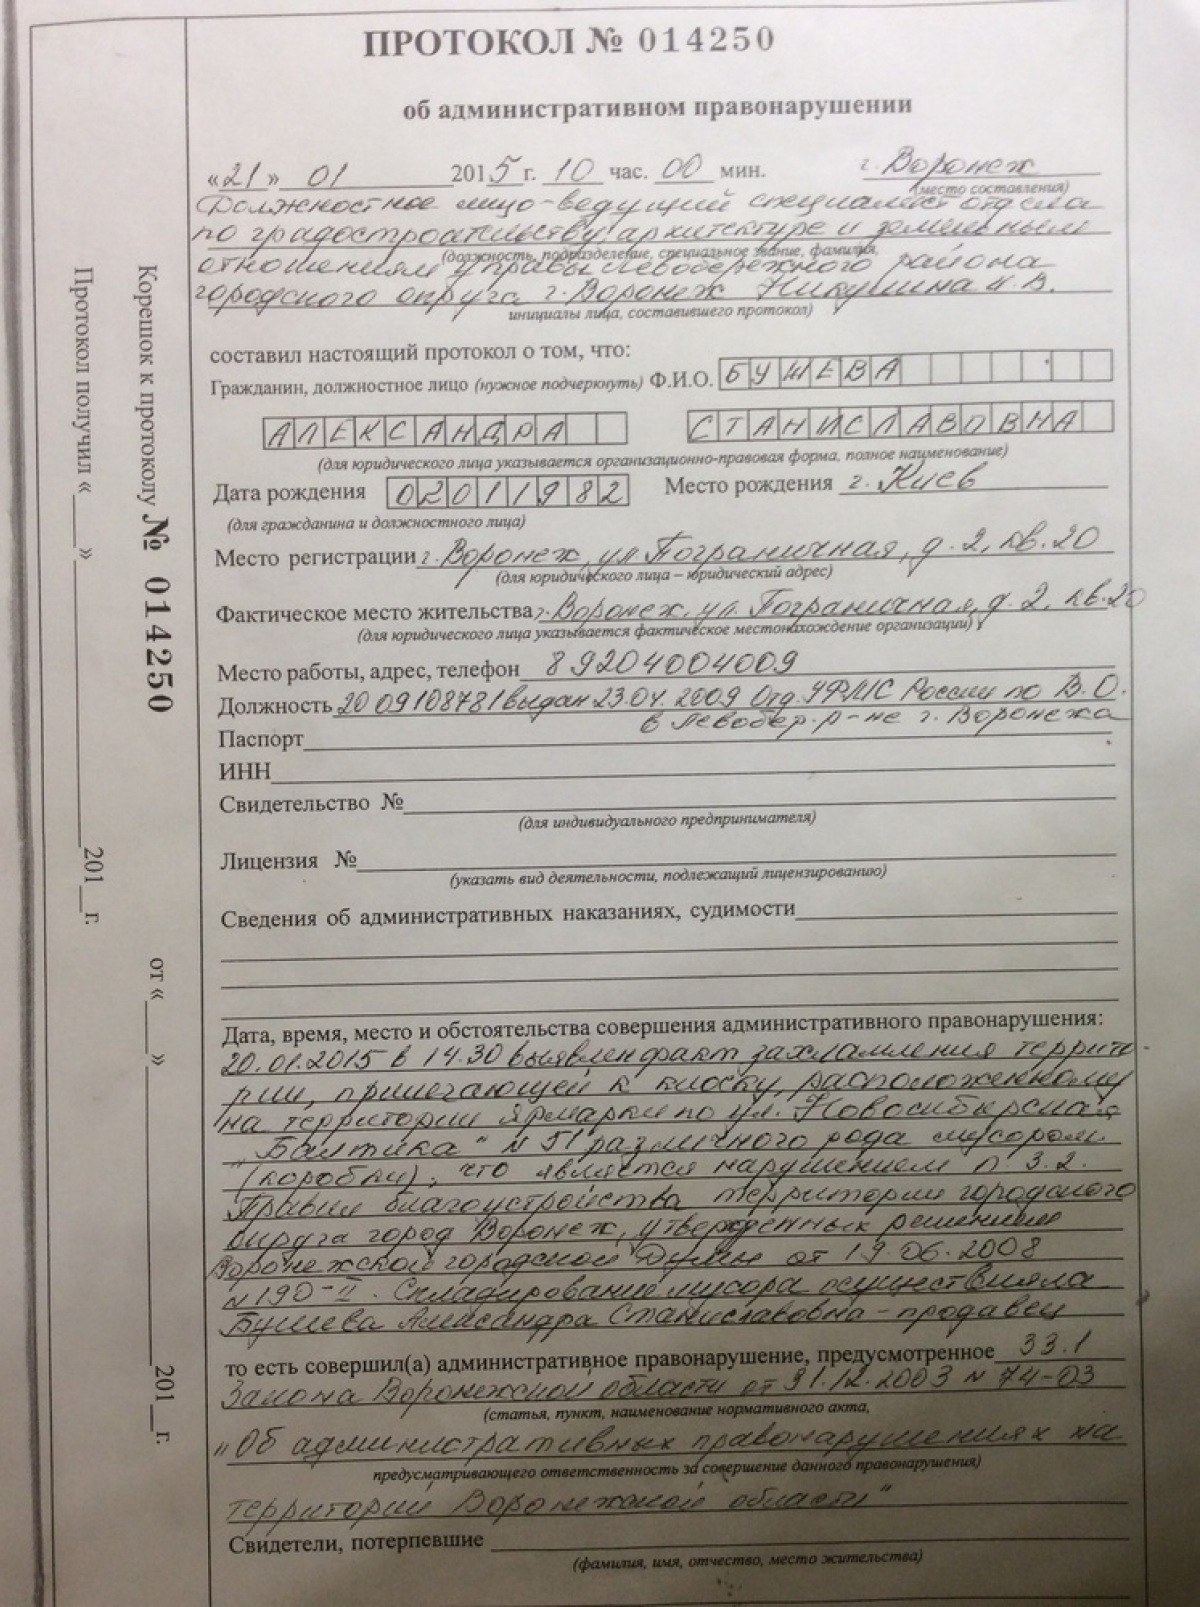 ПРОТОКОЛ № 014250
об административном правонарушении
«21» 01 2015 г. 10 час. 00 мин. г. Воронеж
(место составления)
Должностное лицо - ведущий специалист отдела
по градостроительству, архитектуре и земельным
(должность, подразделение, специальное звание, фамилия,
отношениям управы Левобережного района
городского округа г. Воронеж Никулина Н.В.
инициалы лица, составившего протокол)
составил настоящий протокол о том, что:
Гражданин, должностное лицо (нужное подчеркнуть) Ф.И.О. БУШЕВА
АЛЕКСАНДРА СТАНИСЛАВОВНА
(для юридического лица указывается организационно-правовая форма, полное наименование)
Дата рождения 02011982 Место рождения г. Киев
(для гражданина и должностного лица)
Место регистрации г. Воронеж, ул. Пограничная, д. 2, кв. 20
(для юридического лица – юридический адрес)
Фактическое место жительства г. Воронеж, ул. Пограничная, д. 2, кв. 20
(для юридического лица указывается фактическое местонахождение организации)
Место работы, адрес, телефон 89204004009
Должность 20 09108781 выдан 23.04.2009 Отд. УФМС России по В.О.
в Левобер. р-не г. Воронежа
Паспорт
ИНН
Свидетельство №
(для индивидуального предпринимателя)
Лицензия №
(указать вид деятельности, подлежащий лицензированию)
Сведения об административных наказаниях, судимости
Дата, время, место и обстоятельства совершения административного правонарушения:
20.01.2015 в 14.30 выявлен факт захламления террито-
рии, прилегающей к киоску, расположенному
на территории ярмарки по ул. Новосибирская
„Балтика" № 51 различного рода мусором
(коробки), что является нарушением п. 3.2.
Правил благоустройства территории городского
округа город Воронеж, утвержденных решением
Воронежской городской Думы от 19.06.2008
№ 190-II. Складирование мусора осуществляла
Бушева Александра Станиславовна - продавец
то есть совершил(а) административное правонарушение, предусмотренное 33.1
Закона Воронежской области от 31.12.2003 № 74-ОЗ
(статья, пункт, наименование нормативного акта,
„Об административных правонарушениях на
предусматривающего ответственность за совершение данного правонарушения)
территории Воронежской области"
Свидетели, потерпевшие
(фамилия, имя, отчество, место жительства)
Корешок к протоколу № 014250 от «___» 201__г.
Протокол получил «___» 201__г.